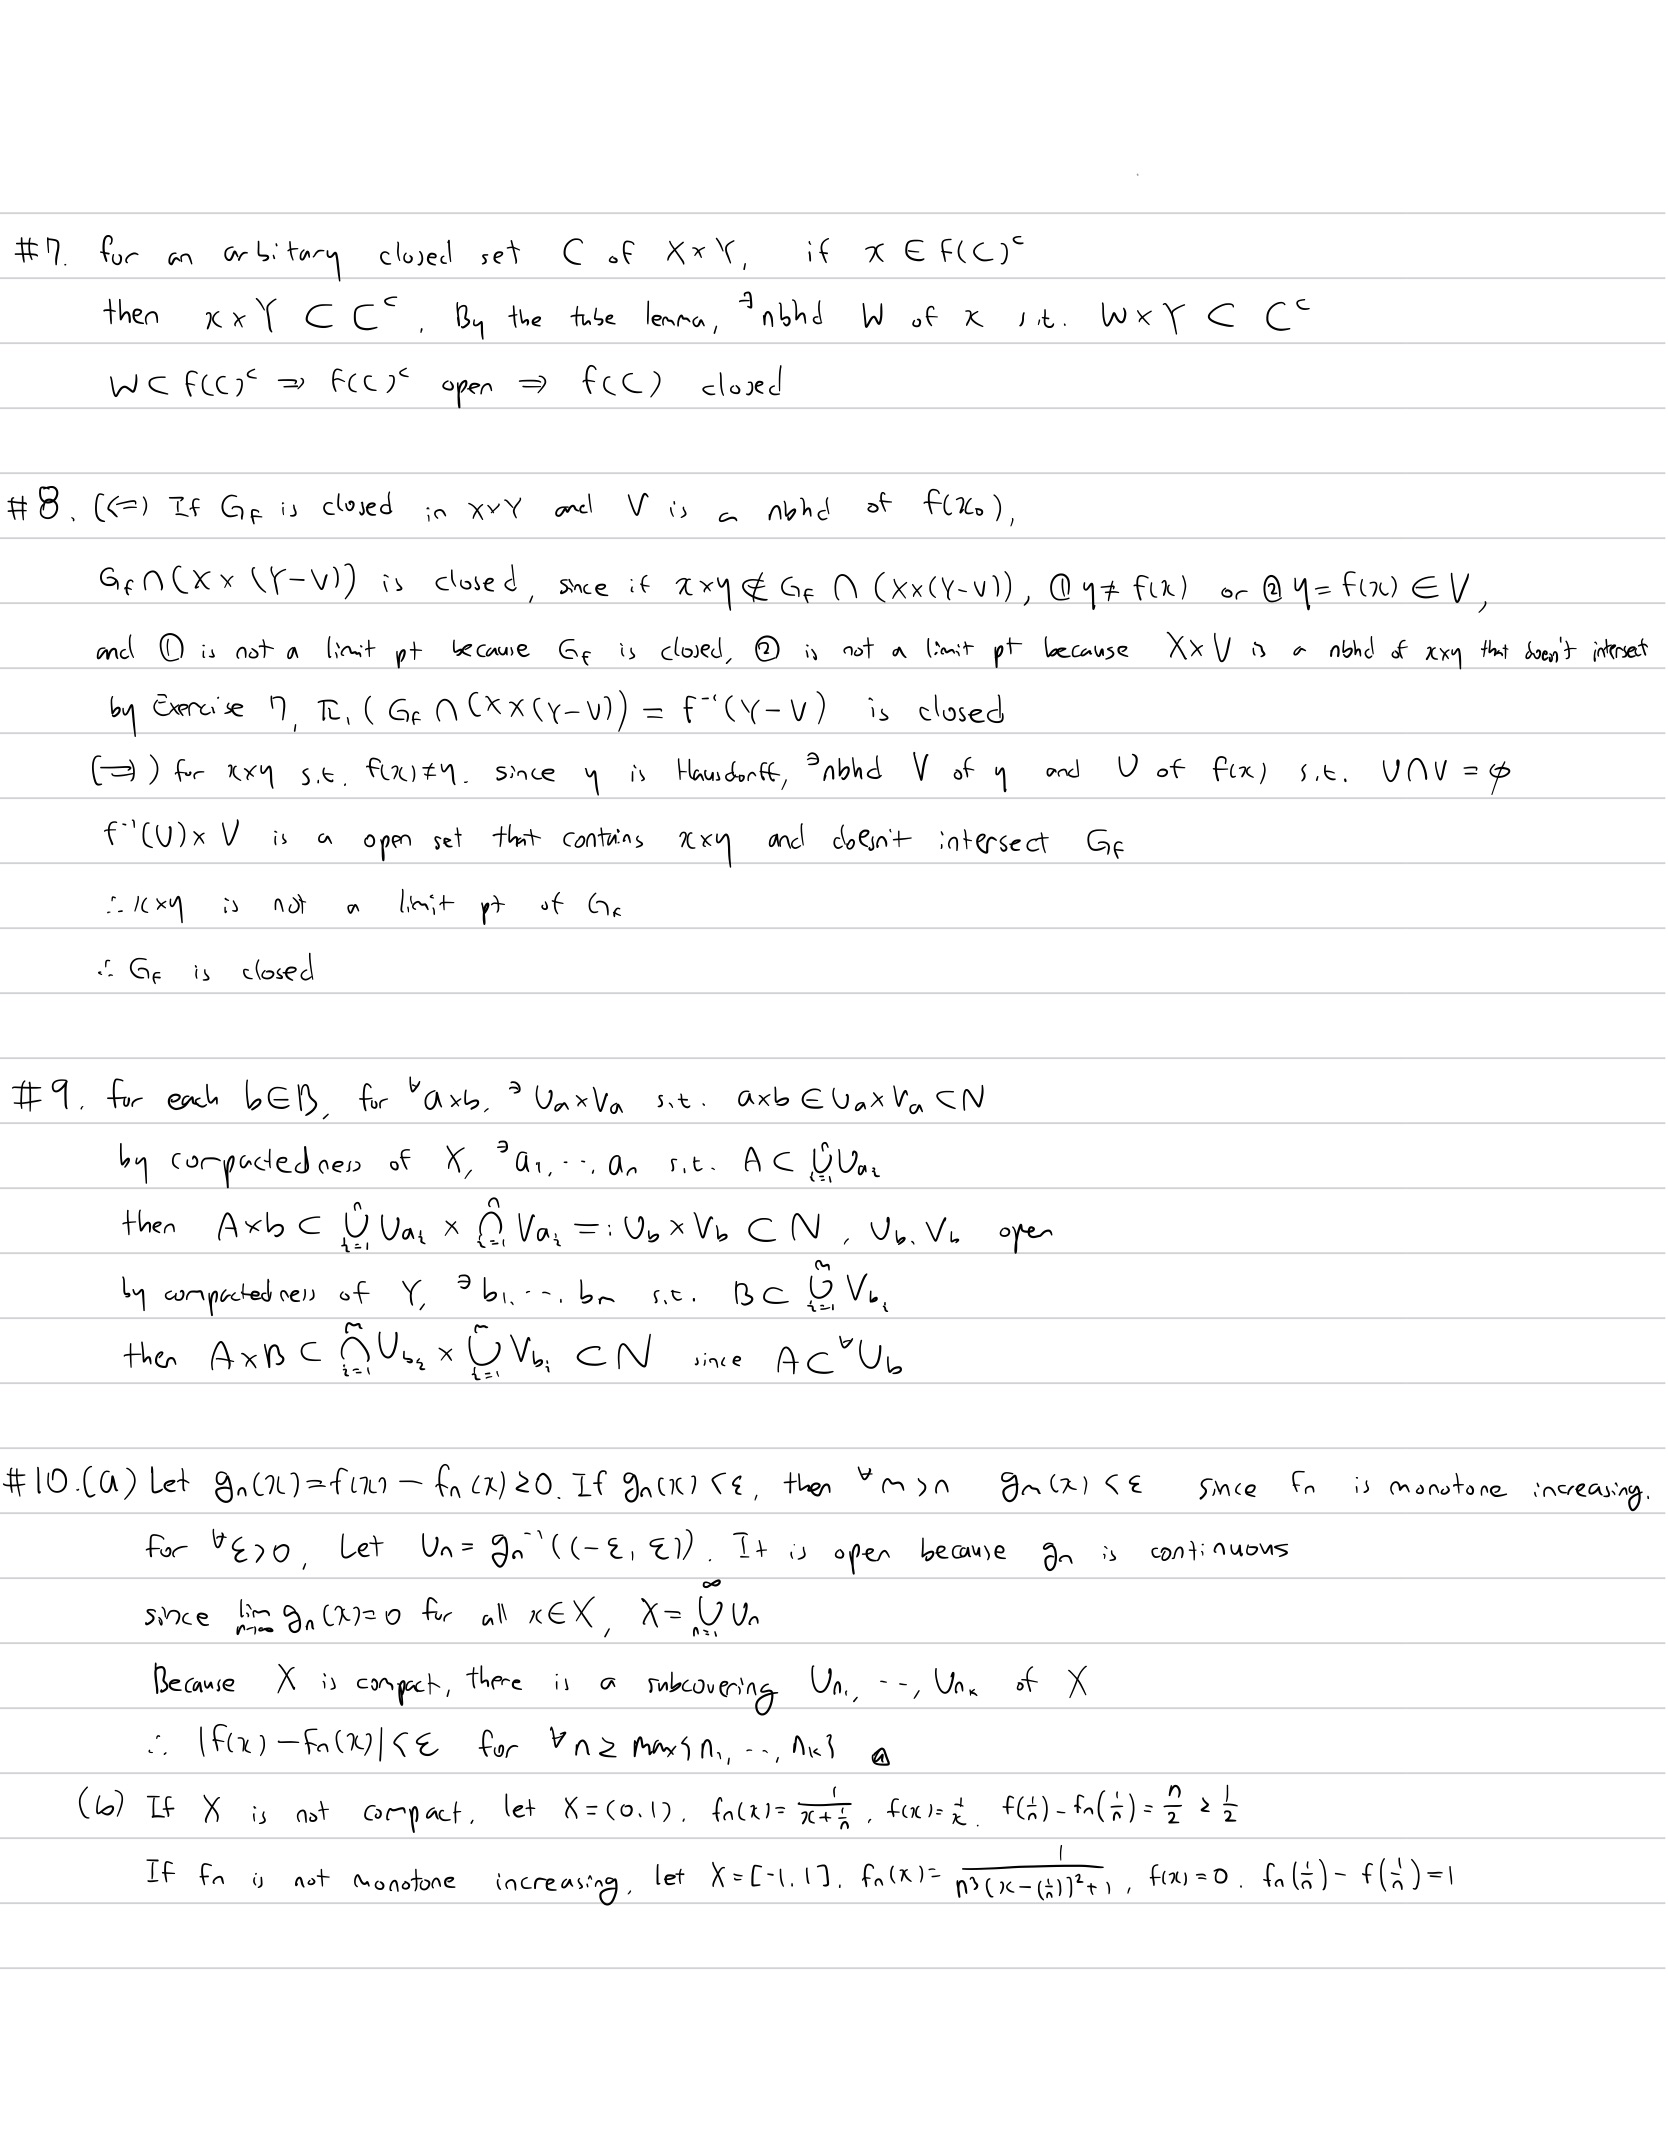 #7. for an arbitary closed set C of X×Y, if x ∈ f(C)ᶜ
then x×Y ⊂ Cᶜ. By the tube lemma, ∃nbhd W of x s.t. W×Y ⊂ Cᶜ
W⊂ f(C)ᶜ ⇒ f(C)ᶜ open ⇒ f(C) closed
#8. (<=) If G_f is closed in X×Y and V is a nbhd of f(x₀),
G_f∩(X×(Y−V)) is closed, since if x×y ∉ G_f ∩ (X×(Y−V)), ① y≠f(x) or ② y=f(x)∈V,
and ① is not a limit pt because G_f is closed, ② is not a limit pt because X×V is a nbhd of x×y that doesn't intersect
by Exercise 7, π₁(G_f ∩(X×(Y−V)) = f⁻¹(Y−V) is closed
(⇒) for x×y s.t. f(x)≠y. since y is Hausdorff, ∃nbhd V of y and U of f(x) s.t. U∩V=∅
f⁻¹(U)×V is a open set that contains x×y and doesn't intersect G_f
∴ x×y is not a limit pt of G_f
∴ G_f is closed
#9. for each b∈B, for ∀a×b, ∃U_a×V_a s.t. a×b ∈U_a×V_a ⊂N
by compactedness of X, ∃a₁, ..., aₙ s.t. A⊂ ⋃_{i=1}^{n} U_{a_i}
then A×b ⊂ ⋃_{i=1}^{n} U_{a_i} × ⋂_{i=1}^{n} V_{a_i} =: U_b×V_b ⊂ N, U_b, V_b open
by compactedness of Y, ∃b₁, ..., bₘ s.t. B⊂ ⋃_{i=1}^{m} V_{b_i}
then A×B ⊂ ⋂_{i=1}^{m} U_{b_i} × ⋃_{i=1}^{m} V_{b_i} ⊂N since A⊂∀U_b
#10.(a) Let gₙ(x)=f(x)−fₙ(x)≥0. If gₙ(x)<ε, then ∀m>n gₘ(x)<ε since fₙ is monotone increasing.
for ∀ε>0, Let Uₙ= gₙ⁻¹((−ε, ε)). It is open because gₙ is continuous
since lim_{n→∞} gₙ(x)=0 for all x∈X, X= ⋃_{n=1}^{∞} Uₙ
Because X is compact, there is a subcovering U_{n₁}, ..., U_{n_k} of X
∴ |f(x)−fₙ(x)|<ε for ∀n≥max{n₁, ..., n_k}
(b) If X is not compact, let X=(0,1), fₙ(x)= 1/(x+1/n), f(x)=1/x. f(1/n)−fₙ(1/n)= n/2 ≥ 1/2
If fₙ is not monotone increasing, let X=[−1,1], fₙ(x)= 1/(n³(x−(1/n)]²+1), f(x)=0. fₙ(1/n)−f(1/n)=1